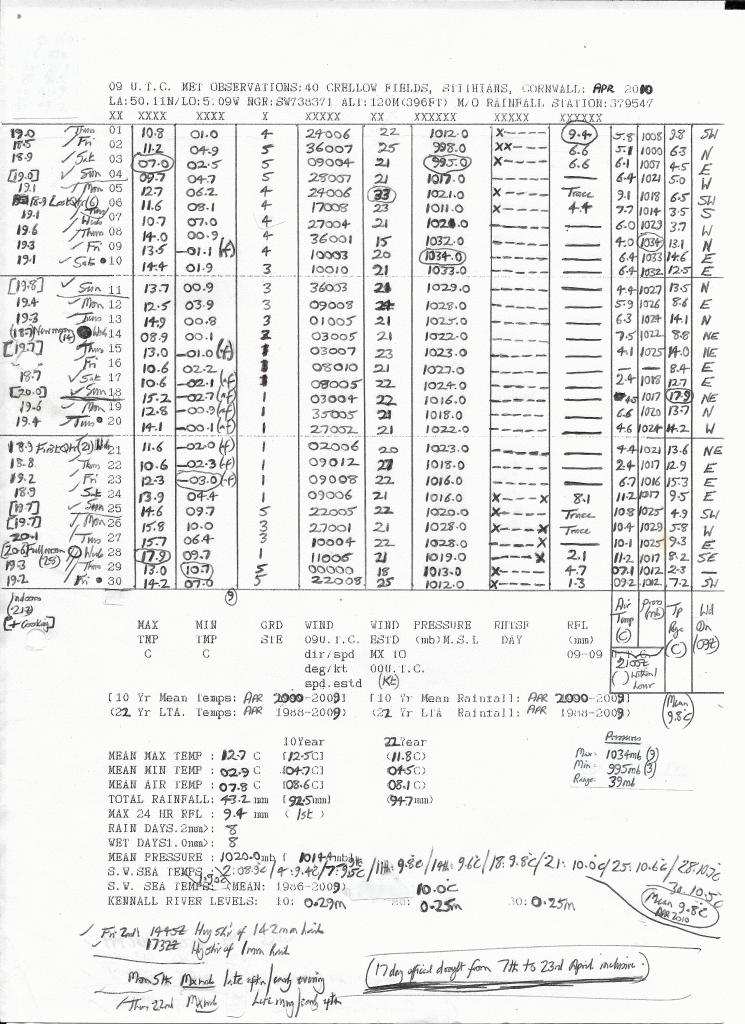 09 U.T.C. MET OBSERVATIONS:40 CRELLOW FIELDS, STITHIANS, CORNWALL: APR 2010
LA:50.11N/LO:5.09W NGR:SW738371 ALT:120M(396FT) M/O RAINFALL STATION:379547
XX XXXX XXXX X XXXXX XX XXXXXX XXXXX XXXXXX
19.0 Thurs 01 10.8 01.0 4 24006 22 1012.0 X---- 9.4 5.8 1008 9.8 SW
18.5 Fri 02 11.2 04.9 5 36007 25 998.0 XX--- 6.6 5.1 1000 6.3 N
18.9 Sat 03 07.0 02.5 5 09004 21 995.0 X---- 6.6 6.1 1007 4.5 E
[19.0] Sun 04 09.7 04.7 5 28007 21 1017.0 X---- 6.4 1021 5.0 W
19.1 Mon 05 12.7 06.2 4 24006 33 1021.0 X---- Trace 9.1 1018 6.5 SW
18.9 Last Qtr (6) 06 11.6 08.1 4 17008 23 1011.0 X---- 4.4 7.7 1014 3.5 S
19.1 Wed 07 10.7 07.0 4 27004 21 ----- 6.0 1029 3.7 W
19.6 Thurs 08 14.0 00.9 4 36001 15 1032.0 ----- 4.0 1034 13.1 N
19.3 Fri 09 13.5 -01.1 (f) 4 10003 20 1034.0 ----- 6.4 1033 14.6 E
19.1 Sat 10 14.4 01.9 3 10010 21 1033.0 ----- 6.4 1032 12.5 E
[19.8] Sun 11 13.7 00.9 3 36003 21 1029.0 ----- 4.4 1027 13.5 N
19.4 Mon 12 12.5 03.9 3 09008 24 1028.0 ----- 5.9 1026 8.6 E
19.3 Tues 13 14.9 00.8 3 01005 21 1025.0 ----- 6.3 1024 14.1 N
(18.7) New moon (14) Wed 14 08.9 00.1 2 03005 21 1022.0 ----- 7.5 1022 8.8 NE
[19.7] Thurs 15 13.0 -01.0 (f) 1 03007 23 1023.0 ----- 4.1 1025 14.0 NE
Fri 16 10.6 02.2 1 08010 21 1027.0 ----- 8.4 E
18.7 Sat 17 10.6 -02.1 (f) 1 08005 22 1024.0 ----- 2.4 1018 12.7 E
[20.0] Sun 18 15.2 -02.7 (f) 1 03004 22 1016.0 ----- 1017 17.9 NE
19.6 Mon 19 12.8 -00.9 (f) 1 35005 21 1018.0 ----- 6.6 1020 13.7 N
19.4 Tues 20 14.1 -00.1 (f) 1 27002 21 1022.0 ----- 4.6 1024 14.2 W
18.9 First Qtr (21) Wed 21 11.6 -02.0 (f) 1 02006 20 1023.0 ----- 4.4 1021 13.6 NE
18.8 Thurs 22 10.6 -02.3 (f) 1 09012 27 1018.0 ----- 2.4 1017 12.9 E
19.2 Fri 23 12.3 -03.0 (f) 1 09008 22 1016.0 ----- 6.7 1016 15.3 E
18.9 Sat 24 13.9 04.4 1 09006 21 1016.0 X---X 8.1 11.2 1017 9.5 E
[19.7] Sun 25 14.6 09.7 5 22005 22 1020.0 X---- Trace 10.8 1025 4.9 SW
[19.7] Mon 26 15.8 10.0 3 27001 21 1028.0 X---X Trace 10.4 1029 5.8 W
20.1 Tues 27 15.7 06.4 3 10004 22 1028.0 ----X 10.1 1025 9.3 E
[20.6] Full moon (28) Wed 28 17.9 09.7 1 11006 21 1019.0 X---X 2.1 11.2 1017 8.2 SE
19.3 Thurs 29 13.0 10.7 5 00000 18 1013.0 X---- 4.7 07.1 1012 2.3 —
19.2 Fri 30 14.2 07.0 5 22008 25 1012.0 X---- 1.3 09.2 1012 7.2 SW
Indoors (21z) [+ Cooking] (9) Air Temp (C) Press (mb) Tp Rge (C) Wd Dn (09z)
MAX MIN GRD WIND WIND PRESSURE RHTSF RFL
TMP TMP STE 09U.T.C. ESTD (mb)M.S.L DAY (mm)
C C dir/spd MX 10 09-09
deg/kt 00U.T.C.
spd.estd (Kt)
[10 Yr Mean Temps: APR 2000-2009] [10 Yr Mean Rainfall: APR 2000-2009]
(22 Yr LTA. Temps: APR 1988-2009) (22 Yr LTA Rainfall: APR 1988-2009)
(Mean 9.8°C)
10Year 22Year
MEAN MAX TEMP : 12.7 C [12.5C] (11.8C)
MEAN MIN TEMP : 02.9 C [04.7C] (04.5C)
MEAN AIR TEMP : 07.8 C [08.6C] (08.1C)
TOTAL RAINFALL: 43.2 mm [92.5mm] (94.7mm)
MAX 24 HR RFL : 9.4 mm (1st)
RAIN DAYS.2mm>: 8
WET DAYS1.0mm>: 8
Pressures
Max: 1034mb (9)
Min: 995mb (3)
Range: 39mb
MEAN PRESSURE : 1020.0mb [ 1014.4mb]
S.W. SEA TEMPS: 2: 08.9c/4: 9.4c/7: 9.5c/11th: 9.8c/14th: 9.6c/18: 9.8c/21: 10.0c/25: 10.6c/28: 10.5c
30: 10.5c
S.W. SEA TEMPS: (MEAN: 1986-2009) 10.0c
Mean 9.8c APR 2010
KENNALL RIVER LEVELS: 10: 0.29m 0.25m 30: 0.25m
Fri 2nd: 1445Z Hvy shr of 1-2mm hail
1732Z Hvy shr of 1mm hail
Mon 5th Mx wnd late aftn/early evening
Thurs 22nd Mx wnd late mng/early aftn
(17 day official drought from 7th to 23rd April inclusive.)